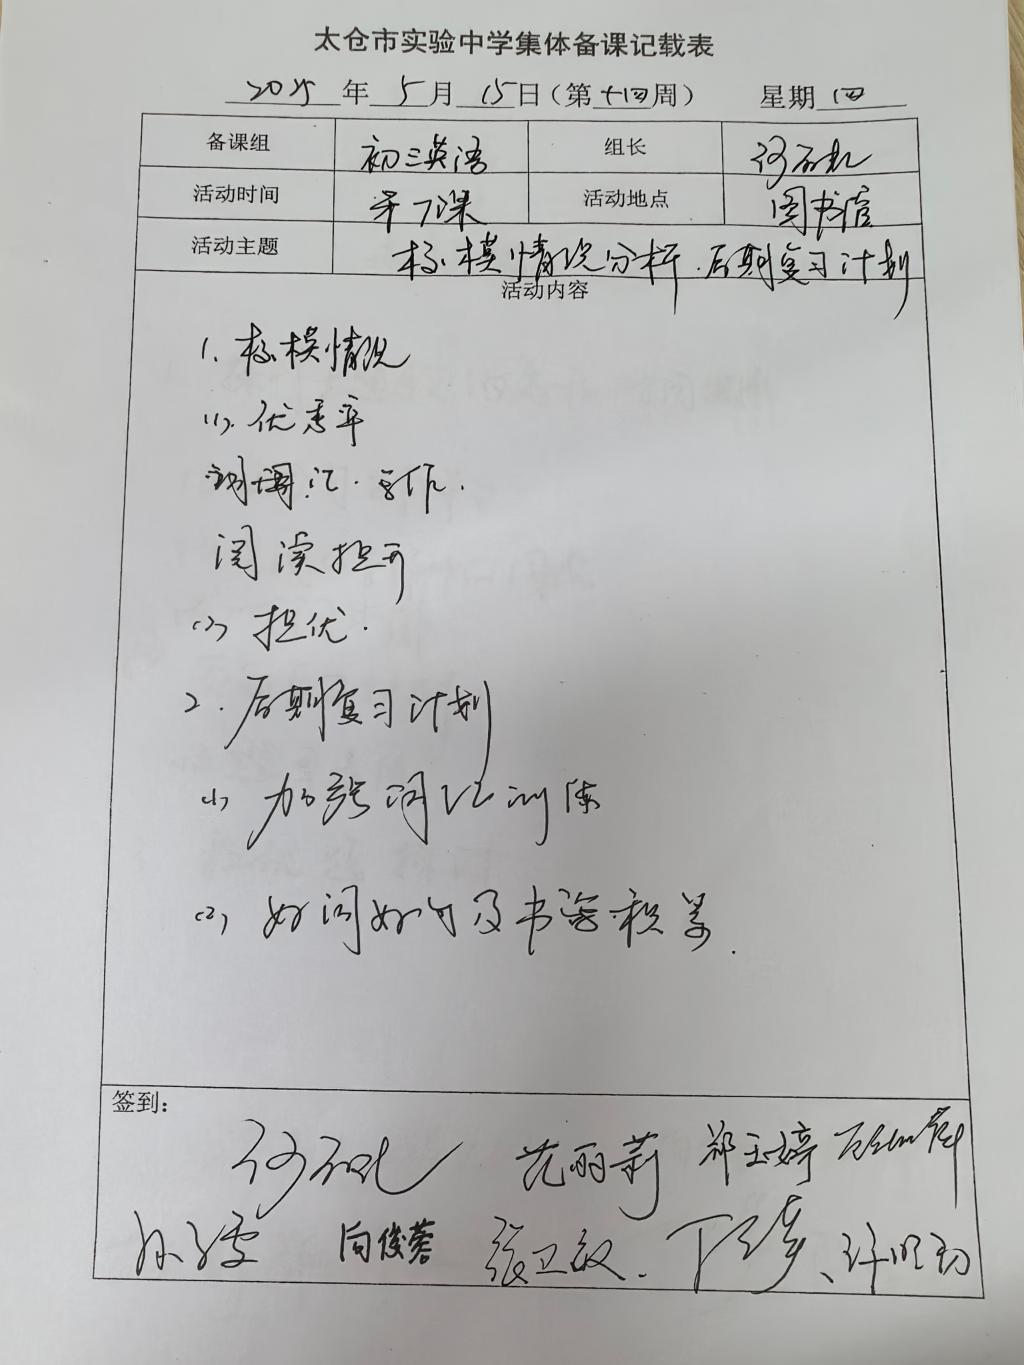 太仓市实验中学集体备课记载表
2025年5月15日(第十四周) 星期四
备课组 初三英语 组长
活动时间 第7课 活动地点 图书馆
活动主题 模情况分析.后期复习计划
活动内容
1.模情况
(1).优秀率
词汇.写作.
阅读拉开
(2)拉优.
2.后期复习计划
(1)加强词汇训练
(2)好词好句及书写积累.
签到:
范丽莉 郑玉婷
向俊蓉 张卫敏.